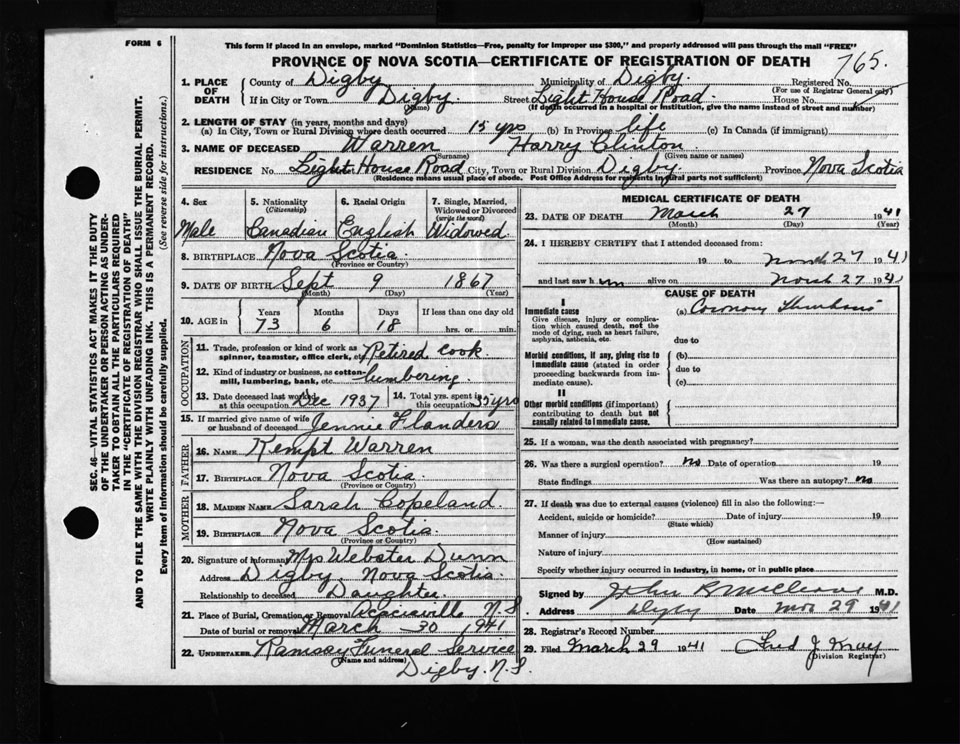 FORM 6
This form if placed in an envelope, marked "Dominion Statistics—Free, penalty for improper use $300," and properly addressed will pass through the mail "FREE"
PROVINCE OF NOVA SCOTIA—CERTIFICATE OF REGISTRATION OF DEATH
765.
1. PLACE OF DEATH County of Digby Municipality of Digby. Registered No.
(For use of Registrar General only)
If in City or Town Digby. Street Light House Road. House No.
(Name) (If death occurred in a hospital or institution, give the name instead of street and number)
2. LENGTH OF STAY (in years, months and days)
(a) In City, Town or Rural Division where death occurred 15 yrs (b) In Province life (c) In Canada (if immigrant)
3. NAME OF DECEASED Warren Harry Clinton
(Surname) (Given name or names)
RESIDENCE No. Light House Road City, Town or Rural Division Digby Province Nova Scotia
(Residence means usual place of abode. Post Office Address for residents in rural parts not sufficient)
4. Sex 5. Nationality (Citizenship) 6. Racial Origin 7. Single, Married, Widowed or Divorced (write the word)
Male Canadian English Widowed
8. BIRTHPLACE Nova Scotia
(Province or Country)
9. DATE OF BIRTH Sept 9 1867
(Month) (Day) (Year)
10. AGE in Years Months Days If less than one day old
73 6 18 hrs. or min.
OCCUPATION
11. Trade, profession or kind of work as spinner, teamster, office clerk, etc. Retired cook
12. Kind of industry or business, as cotton-mill, lumbering, bank, etc. lumbering.
13. Date deceased last worked at this occupation Dec 1937 14. Total yrs. spent in this occupation 35 yrs
15. If married give name of wife or husband of deceased Jennie Flanders
FATHER
16. NAME Kempt Warren
17. BIRTHPLACE Nova Scotia
(Province or Country)
MOTHER
18. MAIDEN NAME Sarah Copeland.
19. BIRTHPLACE Nova Scotia.
(Province or Country)
20. Signature of informant Mrs Webster Dunn
Address Digby. Nova Scotia.
Relationship to deceased Daughter.
21. Place of Burial, Cremation or Removal Acaciaville N.S
Date of burial or removal March 30 1941
22. UNDERTAKER Ramsay Funeral Service
(Name and address)
Digby. N.S.
MEDICAL CERTIFICATE OF DEATH
23. DATE OF DEATH March 27 1941
(Month) (Day) (Year)
24. I HEREBY CERTIFY that I attended deceased from:
19 to March 27 1941
and last saw him alive on March 27 1941
CAUSE OF DEATH
I
Immediate cause (a) Coronary Thrombosis
Give disease, injury or complication which caused death, not the mode of dying, such as heart failure, asphyxia, asthenia, etc.
due to
Morbid conditions, if any, giving rise to immediate cause (stated in order proceeding backwards from immediate cause).
(b)
due to
(c)
II
Other morbid conditions (if important) contributing to death but not causally related to immediate cause.
25. If a woman, was the death associated with pregnancy?
26. Was there a surgical operation? no Date of operation 19
State findings Was there an autopsy? no
27. If death was due to external causes (violence) fill in also the following:—
Accident, suicide or homicide? Date of injury 19
(State which)
Manner of injury
(How sustained)
Nature of injury
Specify whether injury occurred in industry, in home, or in public place
Signed by John M.D.
Address Digby Date Mar 29 1941
28. Registrar's Record Number
29. Filed March 29 1941 Fred J
(Division Registrar)
SEC. 46—VITAL STATISTICS ACT MAKES IT THE DUTY
OF THE UNDERTAKER OR PERSON ACTING AS UNDER-
TAKER TO OBTAIN ALL THE PARTICULARS REQUIRED
IN THE "CERTIFICATE OF REGISTRATION OF DEATH"
AND TO FILE THE SAME WITH THE DIVISION REGISTRAR WHO SHALL ISSUE THE BURIAL PERMIT.
WRITE PLAINLY WITH UNFADING INK. THIS IS A PERMANENT RECORD.
Every item of information should be carefully supplied. (See reverse side for instructions.)